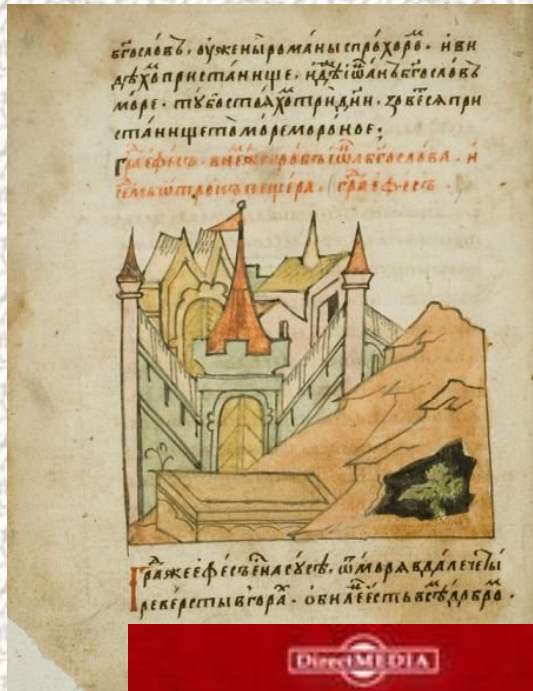 бг҃ословъ. ѹ жены романы с прохороⷨ. и ви
дѣхоⷨ пристанище. идѣ іѡанъ бг҃ословъ
море. тѹ бо стоѧхоⷨ три дн҃и. зовесѧ при
станище то море мороное;
Граⷣ ефесъ. в неⷨ гробъ іѡⷩ҇а бг҃ослова. и
семь ѡтрокъ пещера. граⷣ ефесъ.
Граⷣ же ефесъ еⷭ҇ на сѹсѣ. ѿ морѧ вдалече д҃ ты
ре версты в гораⷯ. обилеⷩ есть всѣⷨ добро.
DirectMEDIA